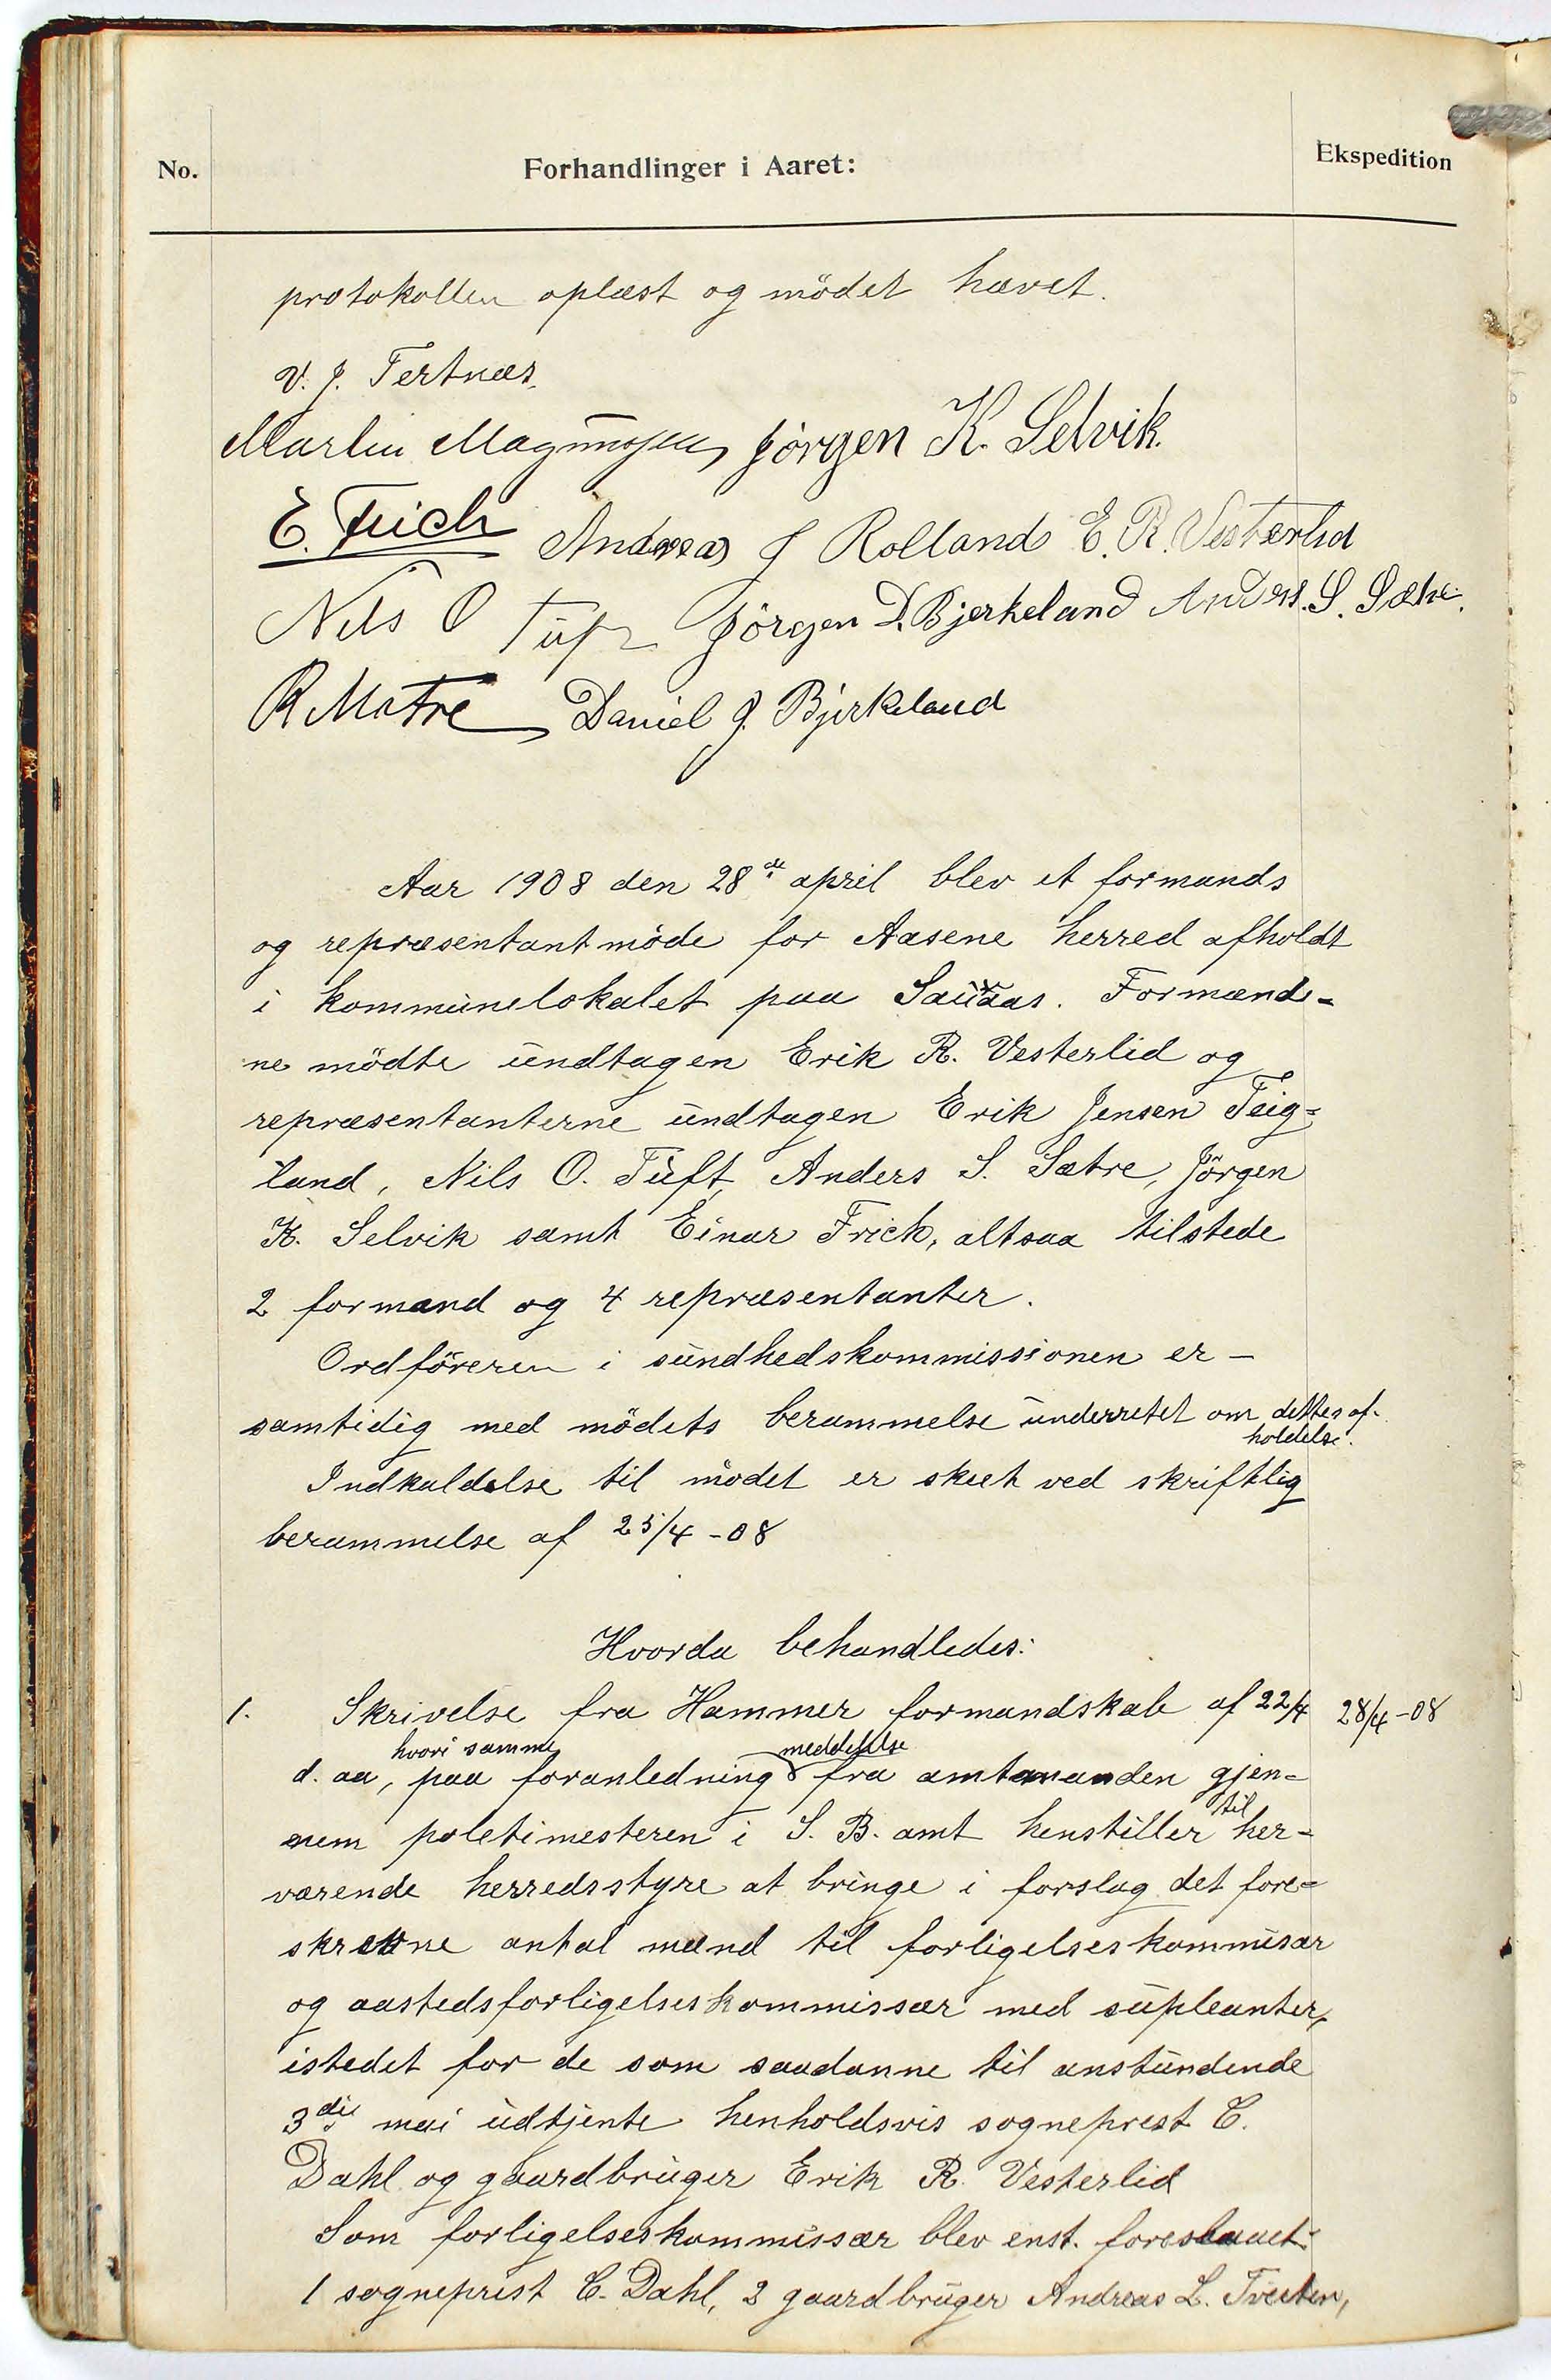 No.
Forhandlinger i Aaret:
Ekspedition
protokollen oplæst og mödet hævet.
V. J. Tertnæs.
Martin Magnussen Jörgen K. Selvik.
E. Frich Andreas J Rolland E. R. Vesterlid
Nils O Tuft Jörgen D. Bjerkeland Anders. S. Sætre.
R Matre Daniel J. Bjerkeland
Aar 1908 den 28de april blev et formands
og repræsentantmöde for Aasene herred afholdt
i kommunelokalet paa Sauaas. Formænde-
ne mödte undtagen Erik R. Vesterlid og
repræsentanterne undtagen Erik Jensen Teig-
land, Nils O. Tuft, Anders S. Sætre, Jörgen
K. Selvik samt Einar Frich, altsaa tilstede
2 formænd og 4 repræsentanter.
Ordföreren i sundhedskommissionen er -
samtidig med mödets berammelse underrettet om dettes af-
holdelse.
Indkaldelse til mödet er skeet ved skriftlig
berammelse af 25/4 -08
Hvorda behandledes:
1. Skrivelse fra Hammer formandskab af 22/4 28/4-08
hvori samme meddelelse
d. aa, paa foranledning fra amtmanden gjen-
til
nem poletimesteren i S. B. amt henstiller her-
værende herredsstyre at bringe i forslag det fore-
skrevne antal mænd til forligelseskommisær
og aastedsforligelseskommissær med supleanter,
istedet for de som saadanne til anstundende
3die mai udtjente henholdsvis sogneprest C.
Dahl og gaardbruger Erik R. Vesterlid
Som forligelseskommissær blev enst. foreslaaet:
1 sogneprest C. Dahl, 2 gaardbruger Andreas L. Tveiten,